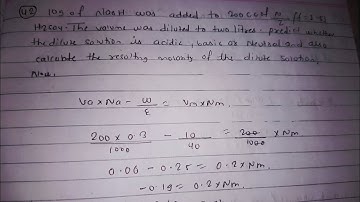 42) 10g of NaOH was added to 200cc of N/2 H2SO4. The volume was diluted to two litres. predict whether
the dilute solution is acidic, basic or Neutral and also
calculate the resulting molarity of the dilute solution
Va × Na - w/E = Vm × Nm.
200 × 0.3/1000 - 10/40 = 200/1000 × Nm
0.06 - 0.25 = 0.2 × Nm
- 0.19 = 0.2 × Nm.